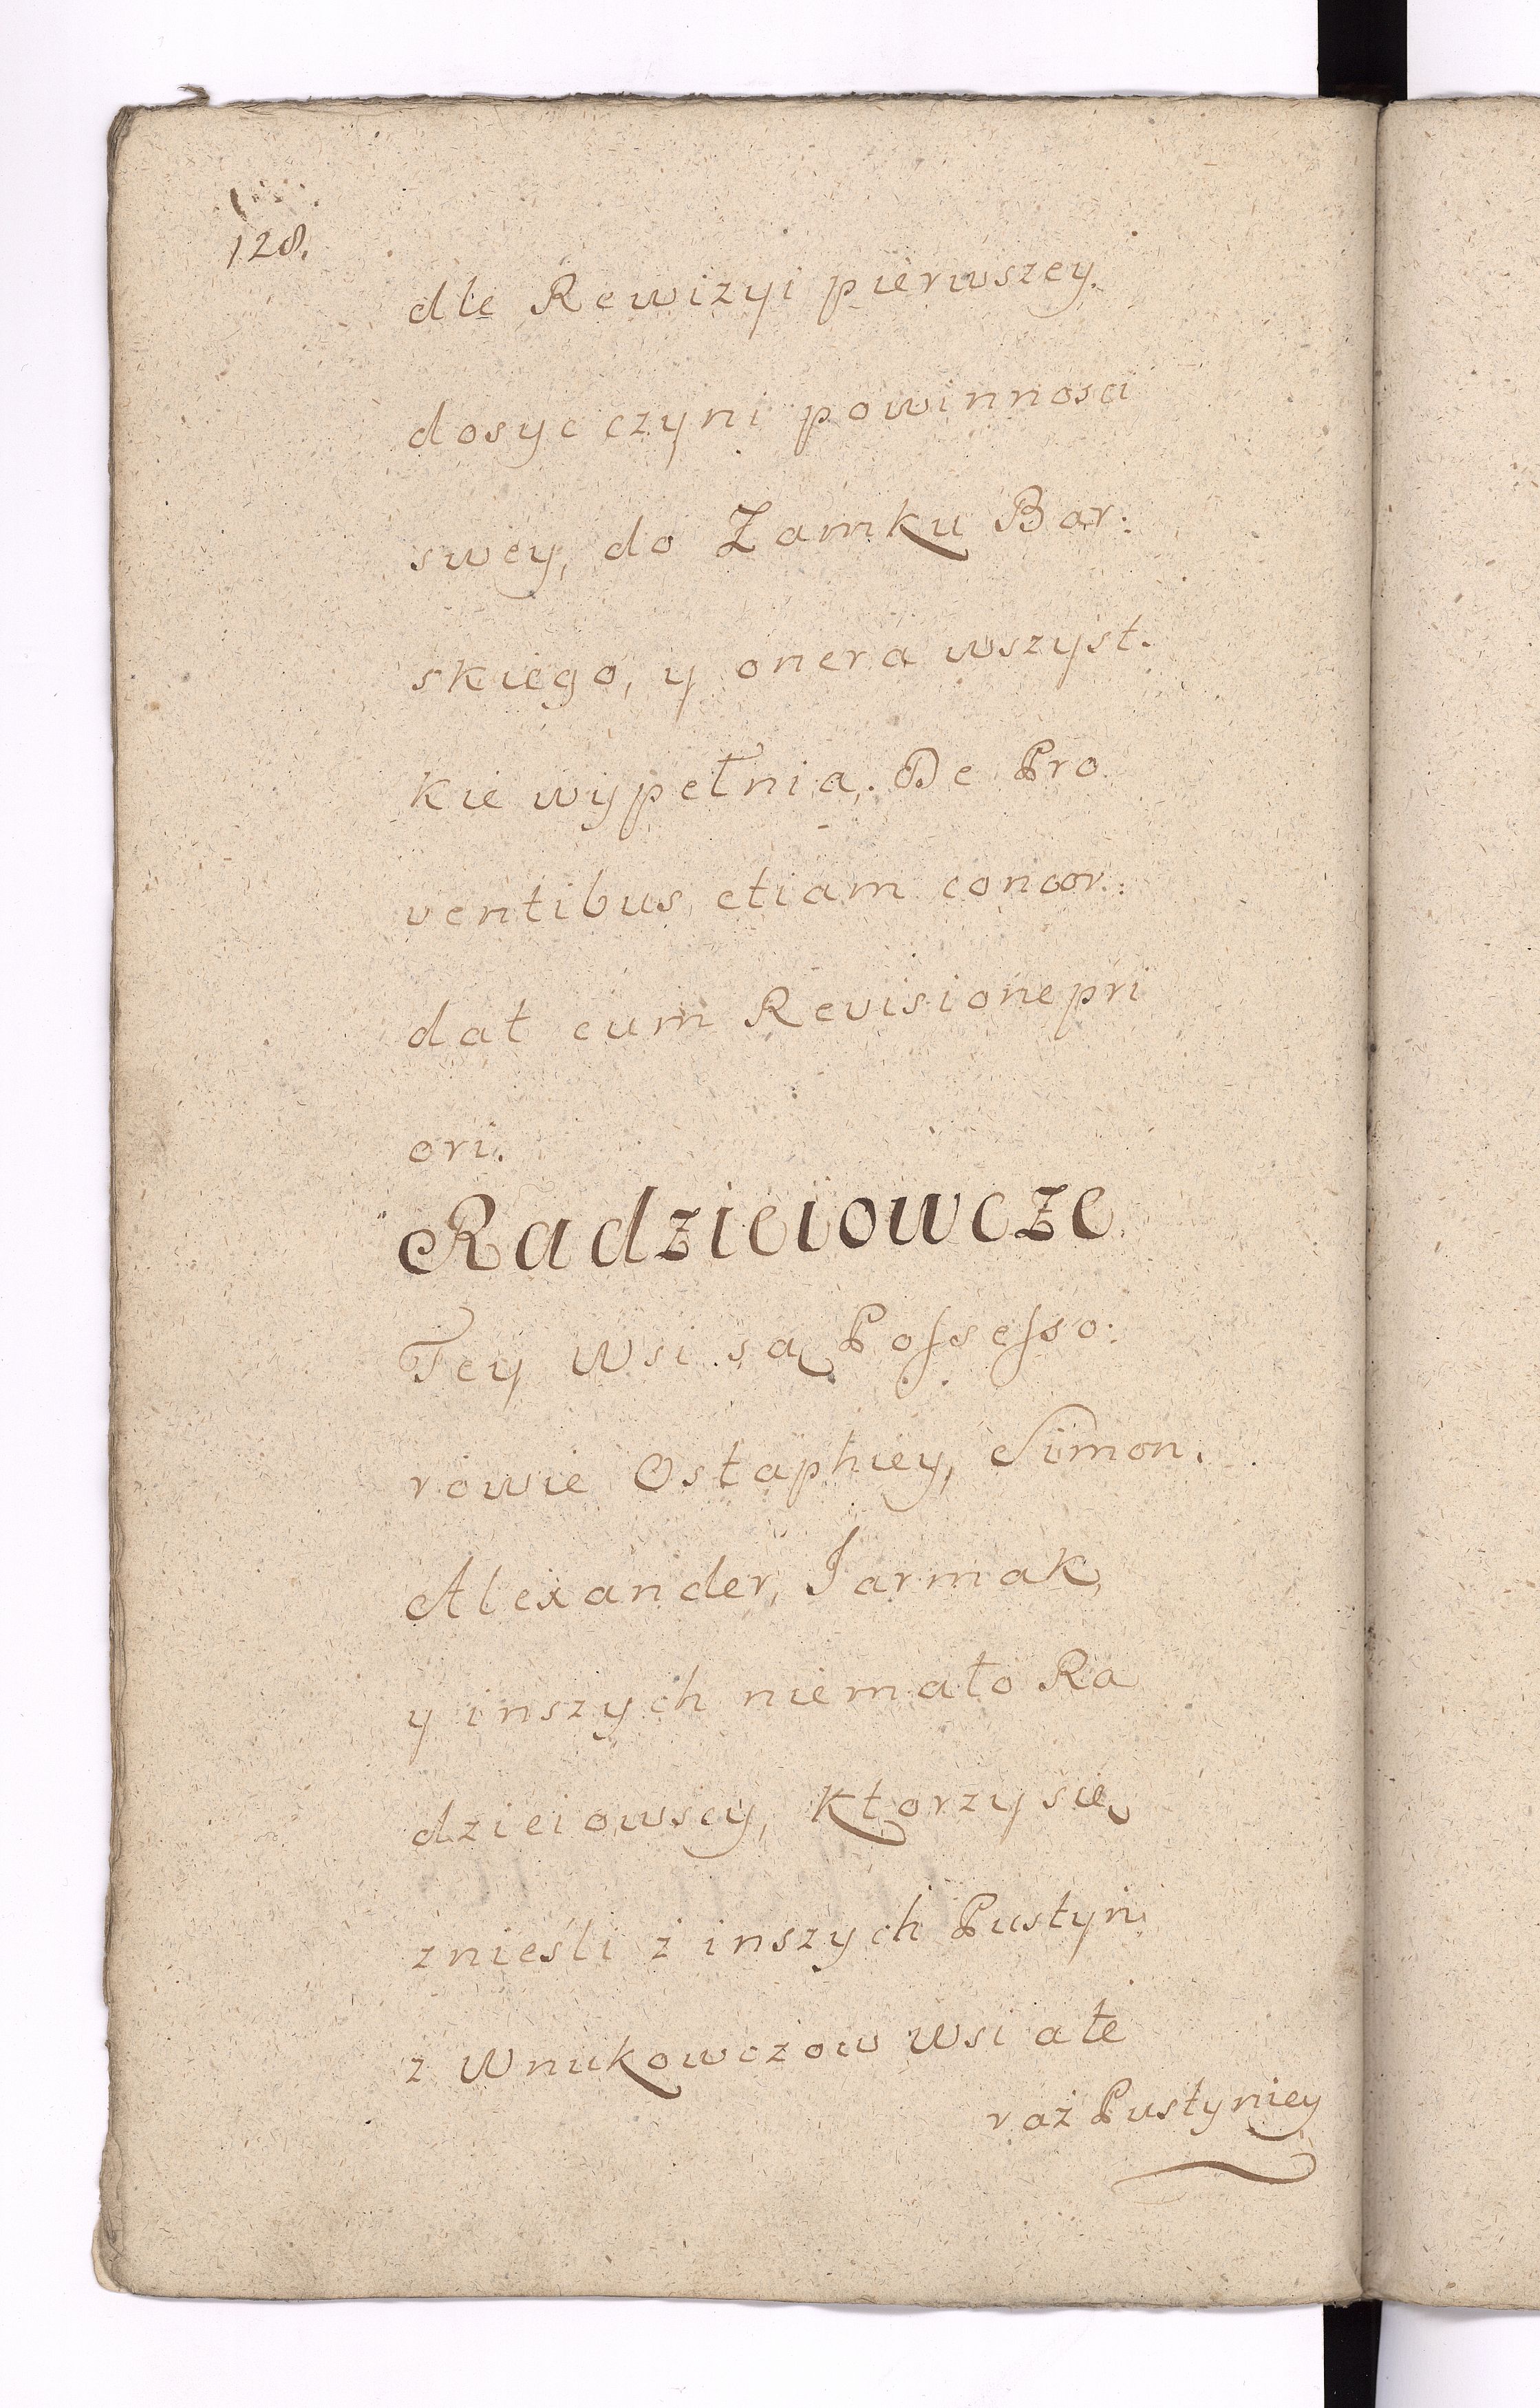 128.
dle Rewizyi pierwszey.
dosyc czyni powinnosci
swey, do Zamku Bar:
skiego, y onera wszyst.
kie wypełnia. De Pro
ventibus etiam concor:
dat cum Revisione pri
ori.
Radzieiowcze
Tey Wsi są Possesso:
rowie Ostaphiey, Simon.
Alexander, Jarmak,
y inszych niemało Ra
dzieiowscy, Ktorzy się
znieśli z inszych Pustyn
z Wnukowczow Wsi ate
raz Pustyniey